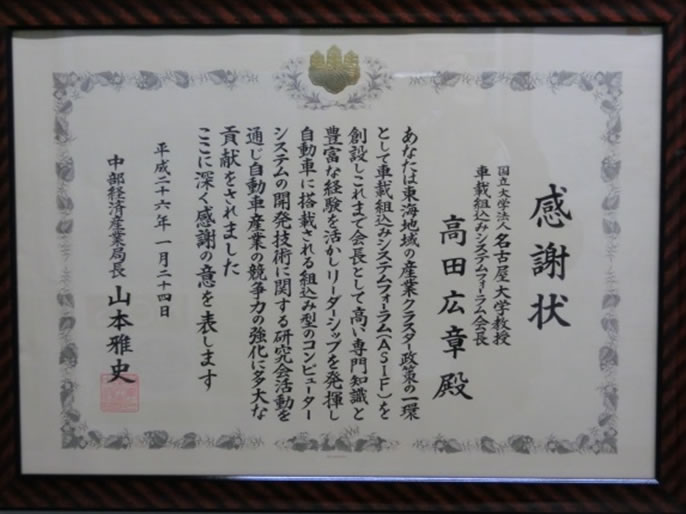 感謝状
国立大学法人名古屋大学教授
車載組込みシステムフォーラム会長
高田広章殿
あなたは東海地域の産業クラスター政策の一環
として車載組込みシステムフォーラム(ASIF)を
創設しこれまで会長として高い専門知識と
豊富な経験を活かしリーダーシップを発揮し
自動車に搭載される組込み型のコンピューター
システムの開発技術に関する研究会活動を
通じ自動車産業の競争力の強化に多大な
貢献をされました
ここに深く感謝の意を表します
平成二十六年一月二十四日
中部経済産業局長山本雅史